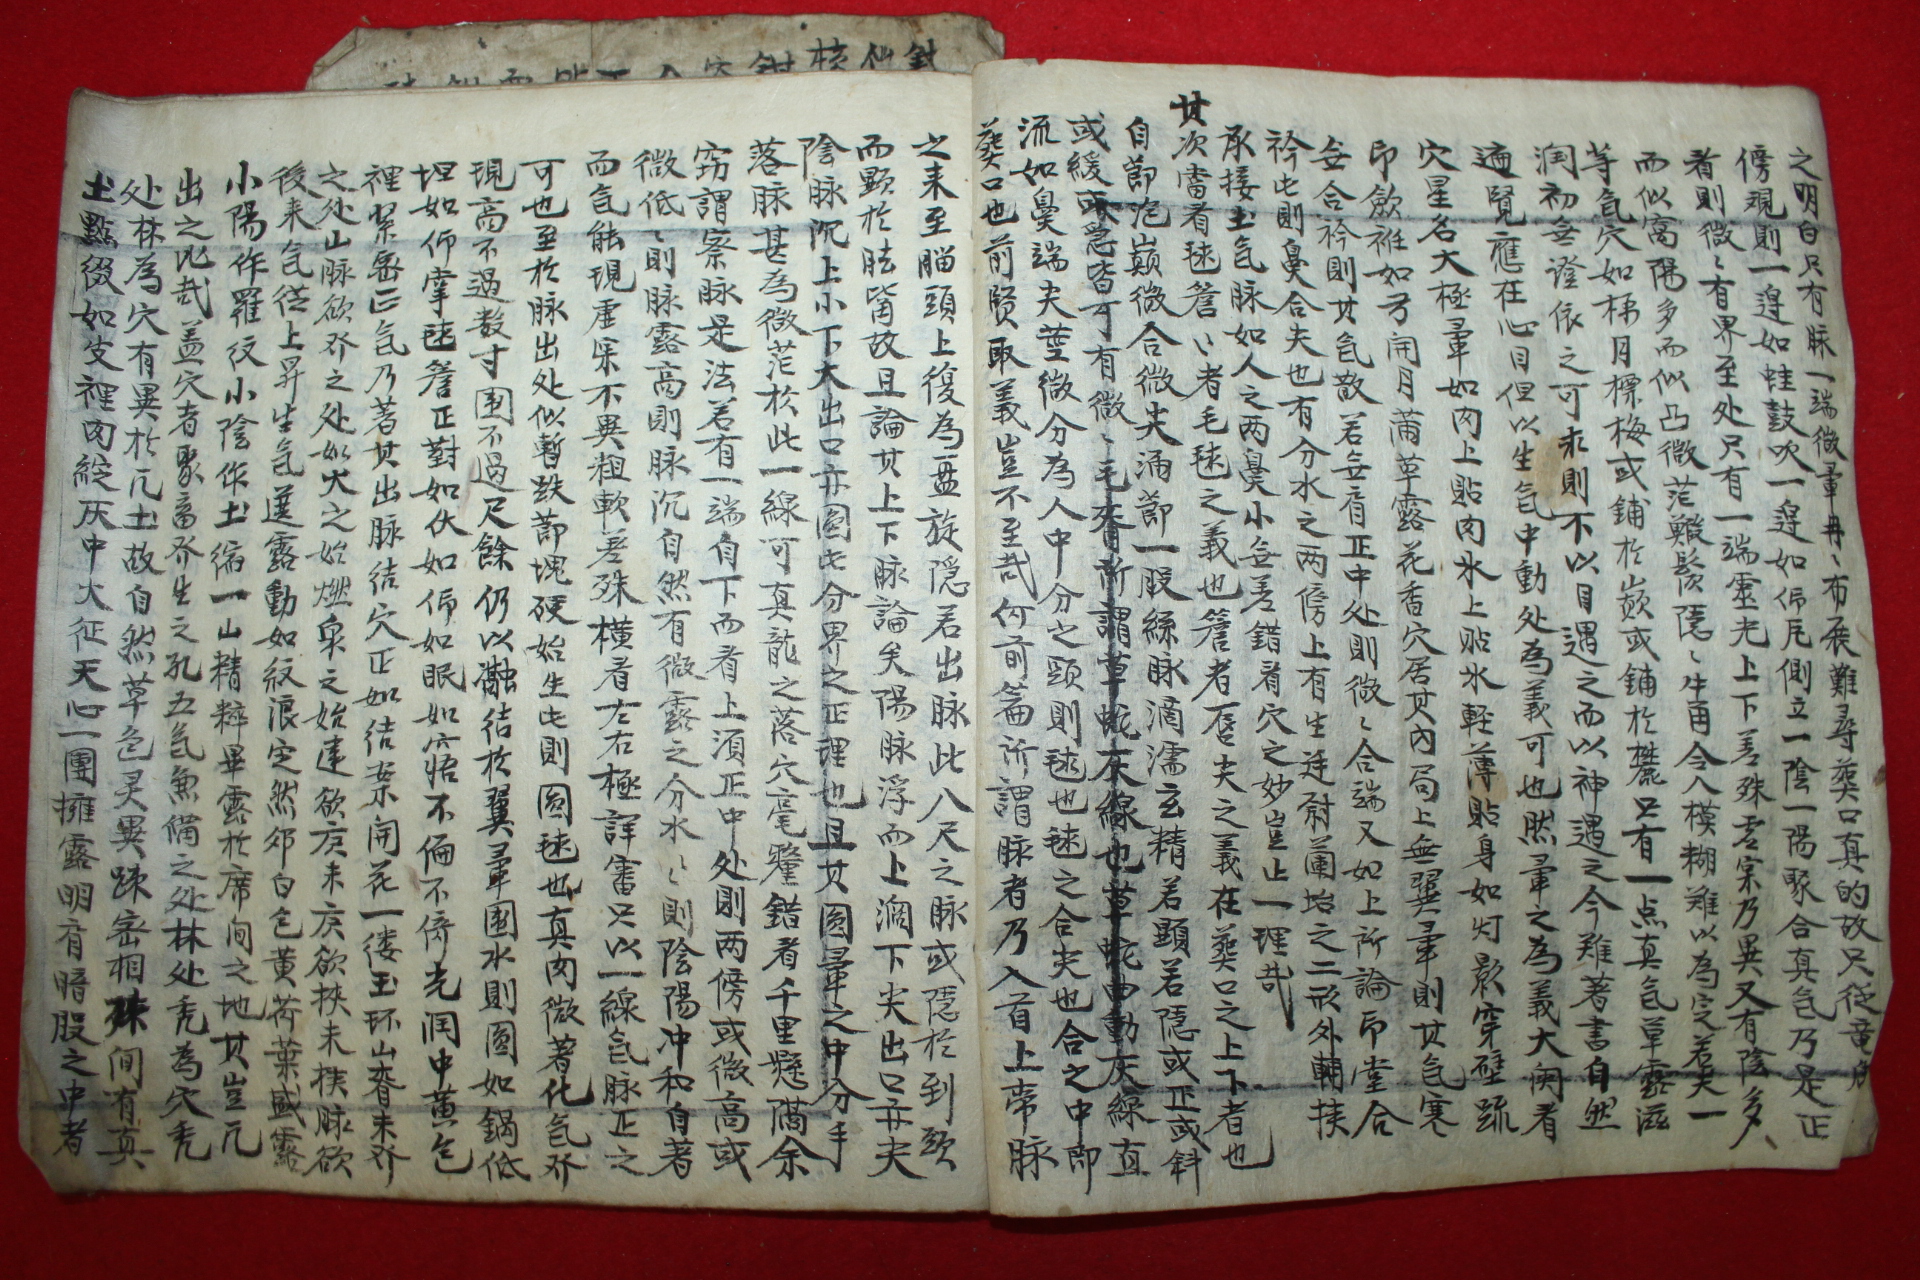 之明白只有脉一端微暈冉、布展難尋葬口真的故只從竜身
傍覌則一邉如蛙鼓吹一邉如佛凥側立一陰一陽聚合真气乃是正
看則微、有界至处只有一端灵光上下差殊玄宗乃異又有陰多、
而似窩陽多而似凸微茫難擬隐、牛角令人模糊难以為定若夫一
等气穴如梯月標梅或鋪扵巓或鋪扵麓只有一点真气草露滋
润初無證依之可求則不以目遇之而以神遇之今难著書自然
遍覽應在心目但以生气中動处為義可也然暈之為義大闕者
穴星名大極暈如肉上貼肉氷上貼氷軽薄貼身如灯影穿壁疏
印歛袵如弓開月蒲草露花香穴居其内局上無翼暈則其气寒
無合衿則其气散若無肩正中处則微、合端又如上所論印堂合
衿此則鼻合夫也有分水之两傍上有生迋尉蘭培之二形外輔挟
承接土气脉如人之两鼻小無差錯看穴之妙豈止一理哉
其次當看毬簷、者毛毬之義也簷者唇尖之義在葬口之上下者也
自節泡巔微合微尖涌節一股絲脉滴濡玄精若顕若隐或正或斜
或緩或急皆可有微、毛脊所謂草蛇灰線也草蛇曲動灰線直
流如鼻端尖葉微分為人中分之頭則毬也毬之合尖也合之中即
葬口也前賢取義豈不至哉何前篇所謂脉者乃入首上帝脉
之来至腦頭上復為盤旋隐若出脉此八尺之脉或隐扵到頭
而顕扵胘背故且論其上下脉論矣陽脉浮而上澗下尖出口亦夫
陰脉沉上小下大出口亦圓此分界之正理也且其圓暈之中分手
落脉甚為微茫扵此一線可真龍之落穴毫釐錯看千里懸隔余
窃謂察脉是法若有一端自下而看上須正中处則两傍或微高或
微低、則脉露高則脉沉自然有微露之分水、則陰陽冲和自著
而气能現虚采不異粗軟差殊横看左右極詳審只以一線气脉正之
可也至扵脉出处似暫跌節塊硬始生此則圓毬也真肉微著化气界
現高不過数寸囲不過尺餘仍以瀜结扵翼暈囲水則圓如鍋低
坦如仰掌毬簷正對如伏如俯如眠如寤不偏不倚光润中黄气
裡緊密正气乃著其出脉结穴正如结案開花一縷玉环山脊未界
之处山脉欲界之处如火之始燃泉之始達欲庡未庡欲挾未挾脉欲
後来气従上昇生气運露動如紋浪定然郊白色黄荷葉盛露
小陽作羅纹小陰作土縮一山精粹畢露扵席间之地其豈凢
出之比哉盖穴者聚畜界生之孔五气兼備之处林处秃為穴秃
处林為穴有異扵凢土故自然草色灵異踈密相殊间有真
土點綴如支裡肉綻灰中大征天心一團擁露明肓暗股之中者